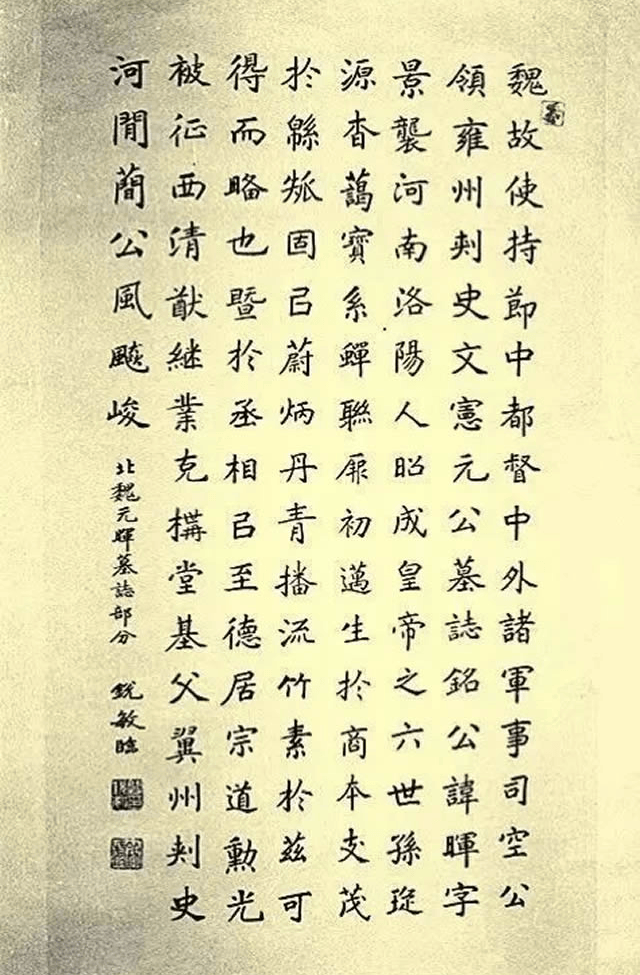 魏故使持節中都督中外諸軍事司空公
領雍州刾史文憲元公墓誌銘公諱暉字
景襲河南洛陽人昭成皇帝之六世孫琁
源杳藹寶系蟬聯厥初邁生於商本支茂
於緜瓞固已蔚炳丹青播流竹素於茲可
得而略也暨於丞相已至德居宗道勳光
被征西清猷継業克構堂基父翼州刾史
河閒蕳公風飈峻
北魏元暉墓誌部分 銳敏臨